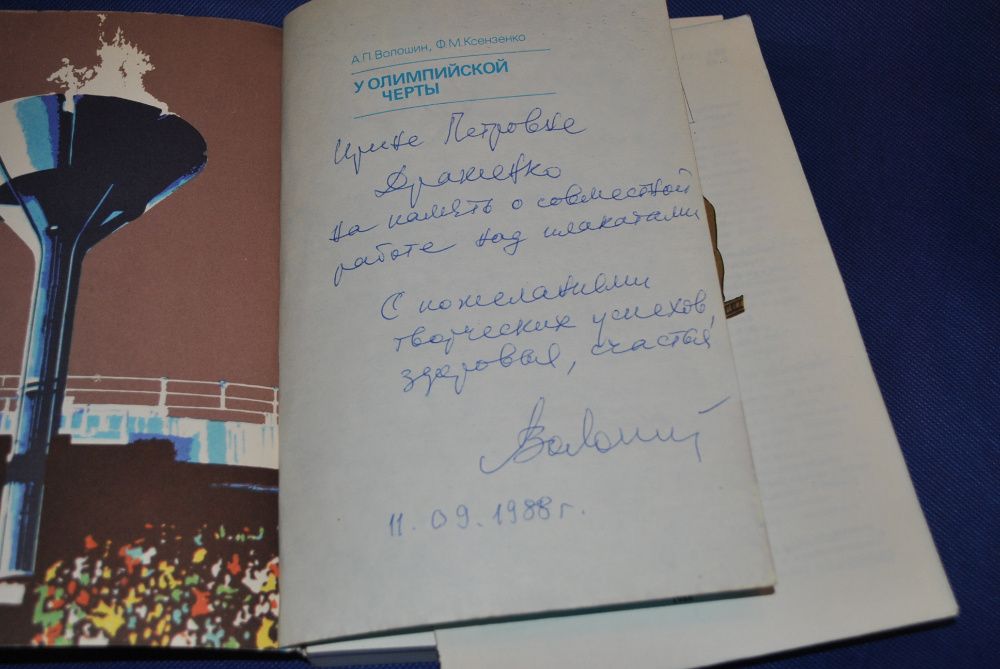 А.П.Волошин, Ф.М.Ксензенко
У ОЛИМПИЙСКОЙ
ЧЕРТЫ
Ирине Петровне
на память о совместной
работе над плакатами
С пожеланиями
творческих успехов,
здоровья, счастья
11.09.1988г.